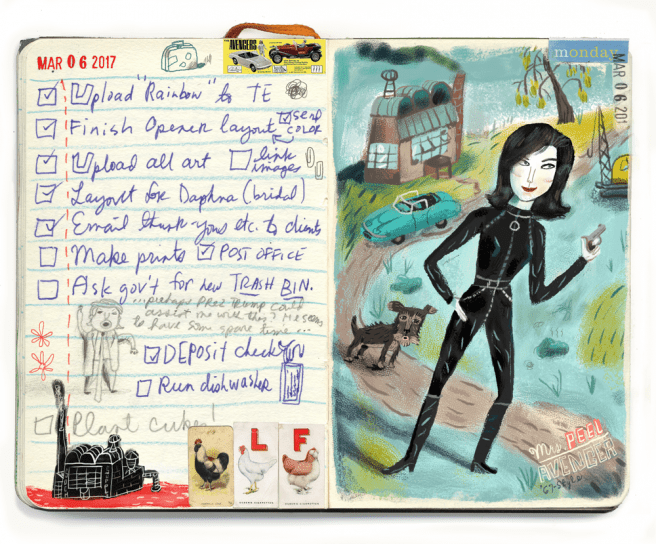 MAR 06 2017
THE AVENGERS
Upload "Rainbow" to TE
Finish Opener layout
send
COLOR
Upload all art
link
images
Layout for Daphna (bridal)
Email thank-yous etc. to clients
Make prints
POST OFFICE
Ask gov't for new TRASH BIN.
...perhaps Prez Trump could
assist me with this? He seems
to have some spare time...
DEPOSIT check
Run dishwasher
Plant cukes!
L
F
monday
MAR 06 201
Mrs. PEEL
AVENGER
'67-style